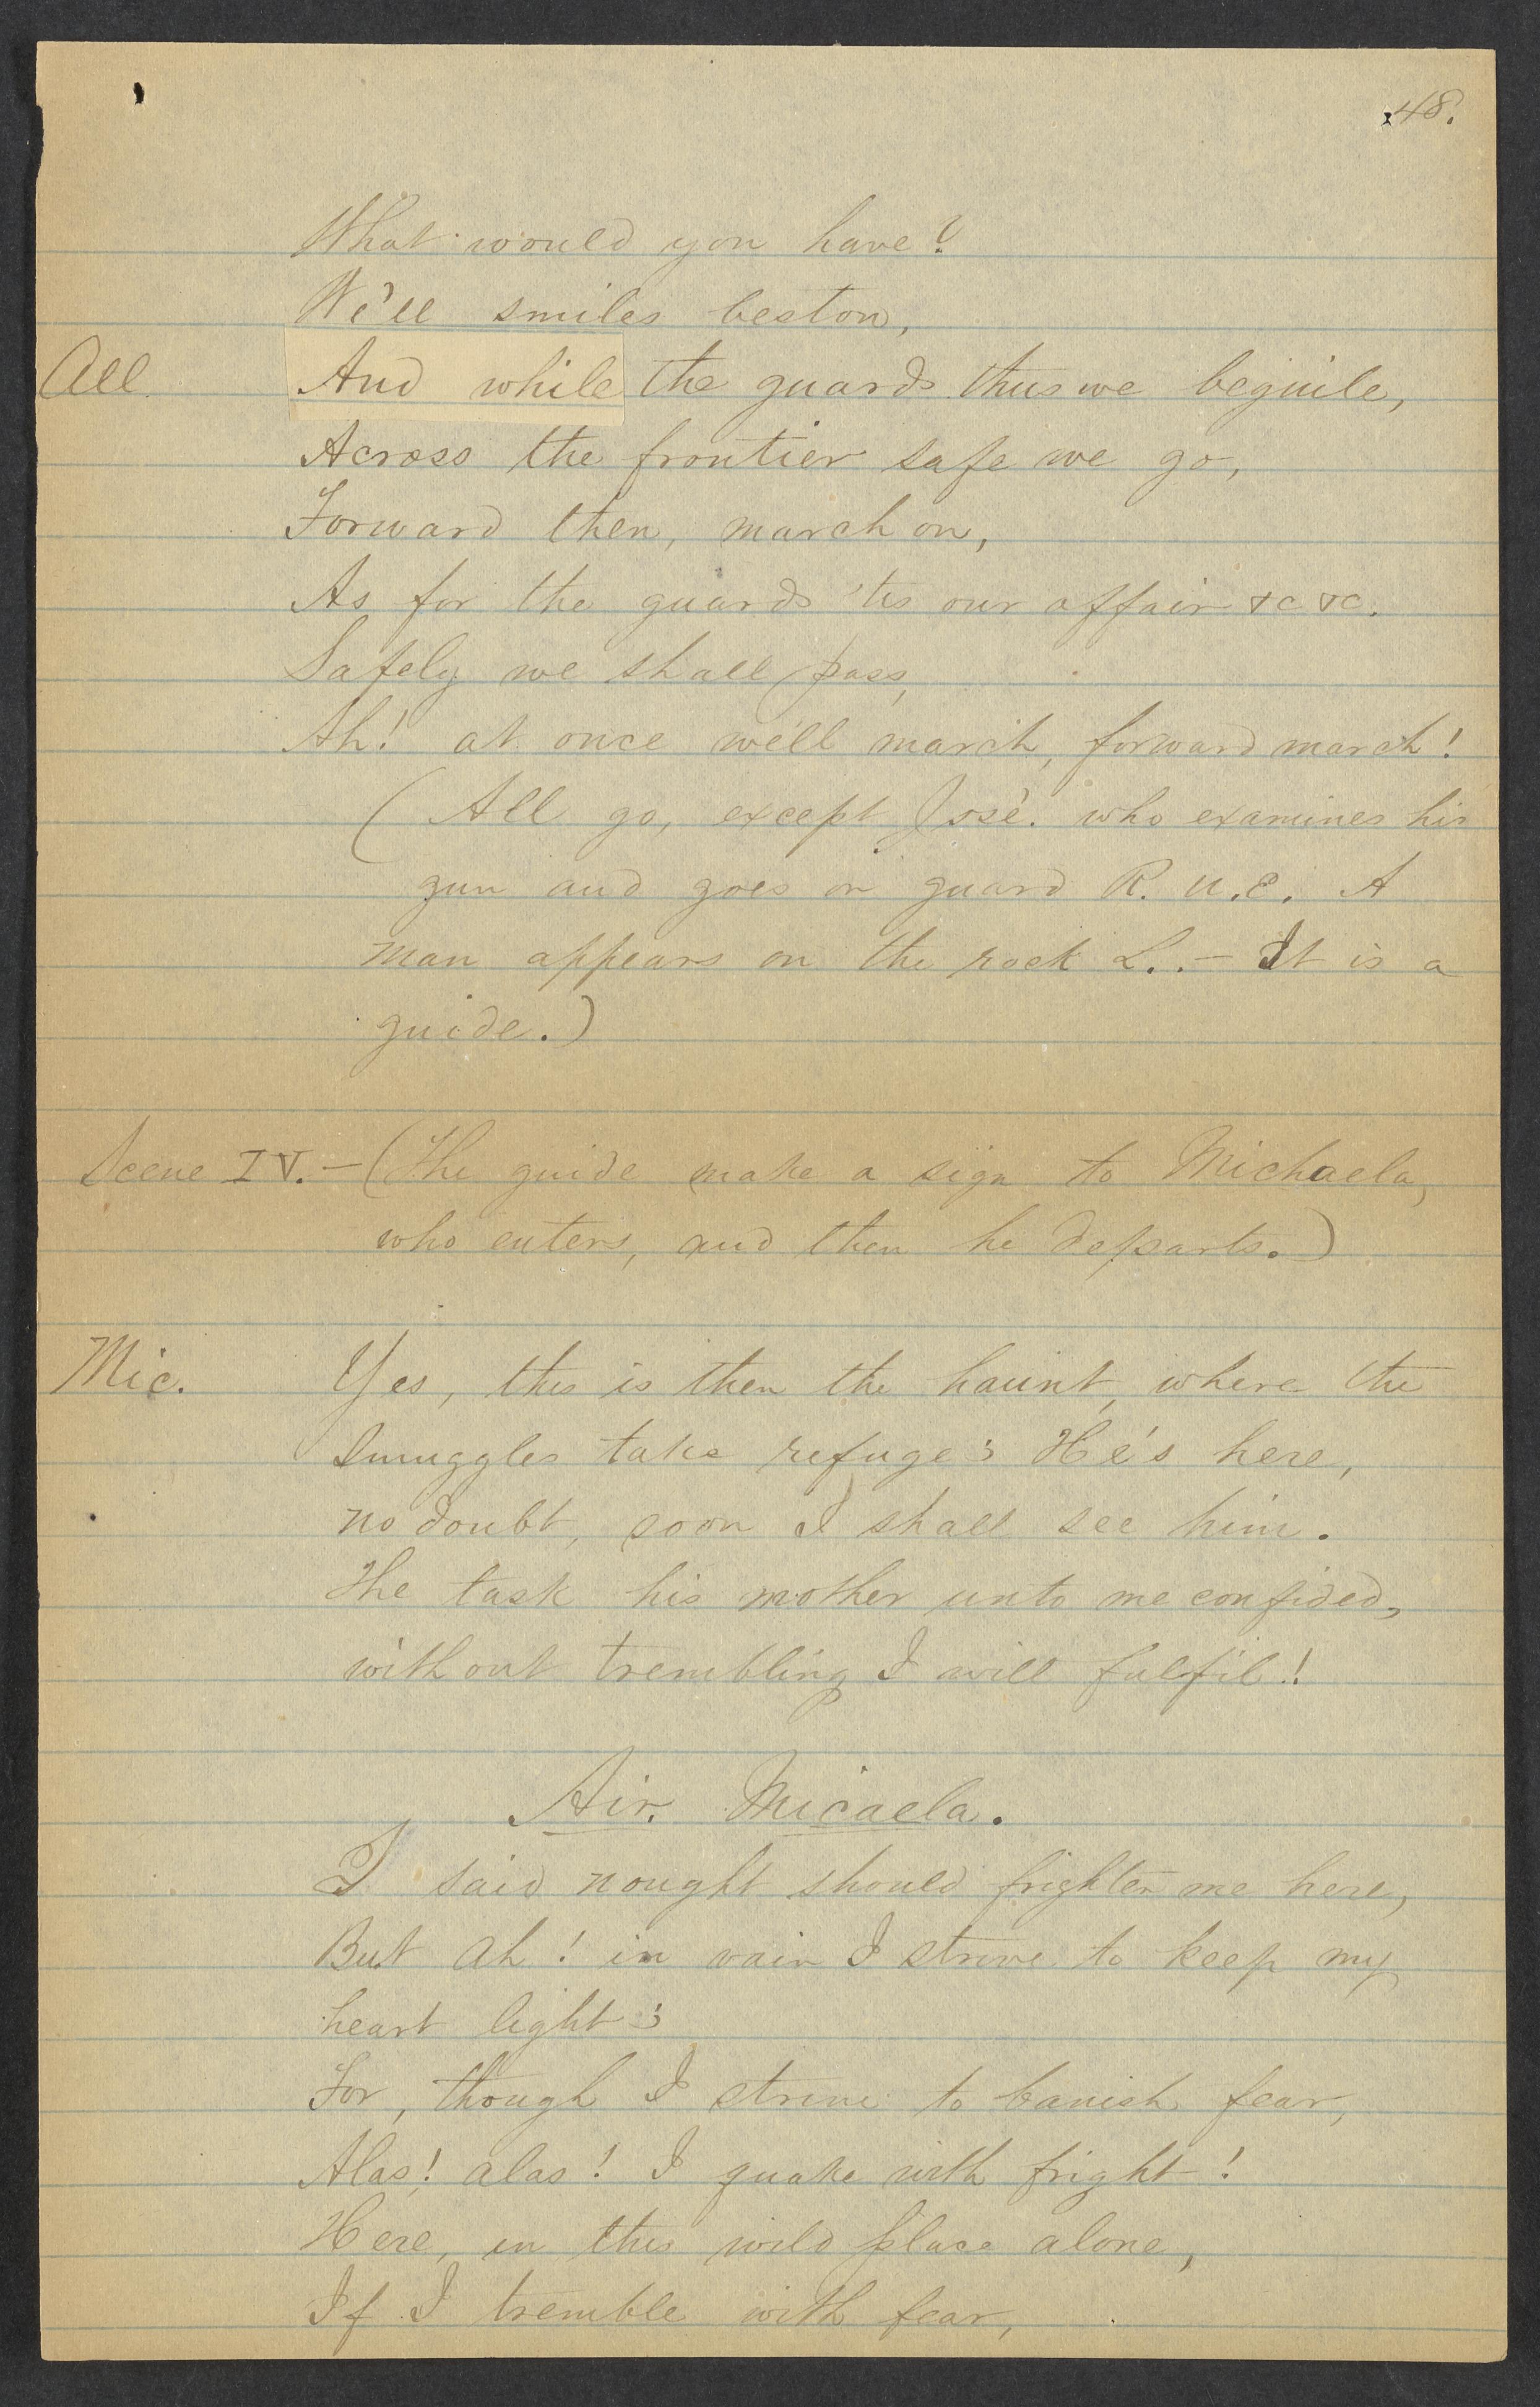 48.
What would you have?
We'll smiles bestow,
All And while the guards thus we beguile,
Across the frontier safe we go,
Forward then, march on,
As for the guards 'tis our affair &c &c.
Safely we shall pass,
Ah! at once we'll march, forward march!
(All go, except José. who examines his
gun and goes on guard R. U. E. A
man appears on the rock L.. – It is a
guide.)
Scene IV. – (The guide make a sign to Michaela,
who enters, and then he departs.)
Mic. Yes, this is then the haunt, where the
Smuggles take refuge; He's here,
no doubt, soon I shall see him.
The task his mother unto me confided,
without trembling I will fulfil!
Air. Micaela.
I said nought should frighten me here,
But ah! in vain I strive to keep my
heart light;
For, though I strive to banish fear,
Alas! alas! I quake with fright!
Here, in this wild place alone,
If I tremble with fear,